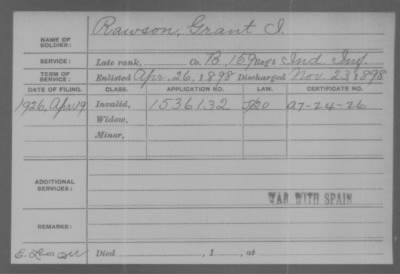 NAME OF SOLDIER: Rawson, Grant I.
SERVICE: Late rank, Co. B, 159 Reg't Ind. Inf.
TERM OF SERVICE: Enlisted Apr. 26, 1898 Discharged Nov. 23, 1898
DATE OF FILING. CLASS. APPLICATION NO. LAW. CERTIFICATE NO.
1926, Apr. 19 Invalid, 1536132 A7-24-26
Widow,
Minor,
ADDITIONAL SERVICES:
WAR WITH SPAIN
REMARKS:
Died , 1 , at